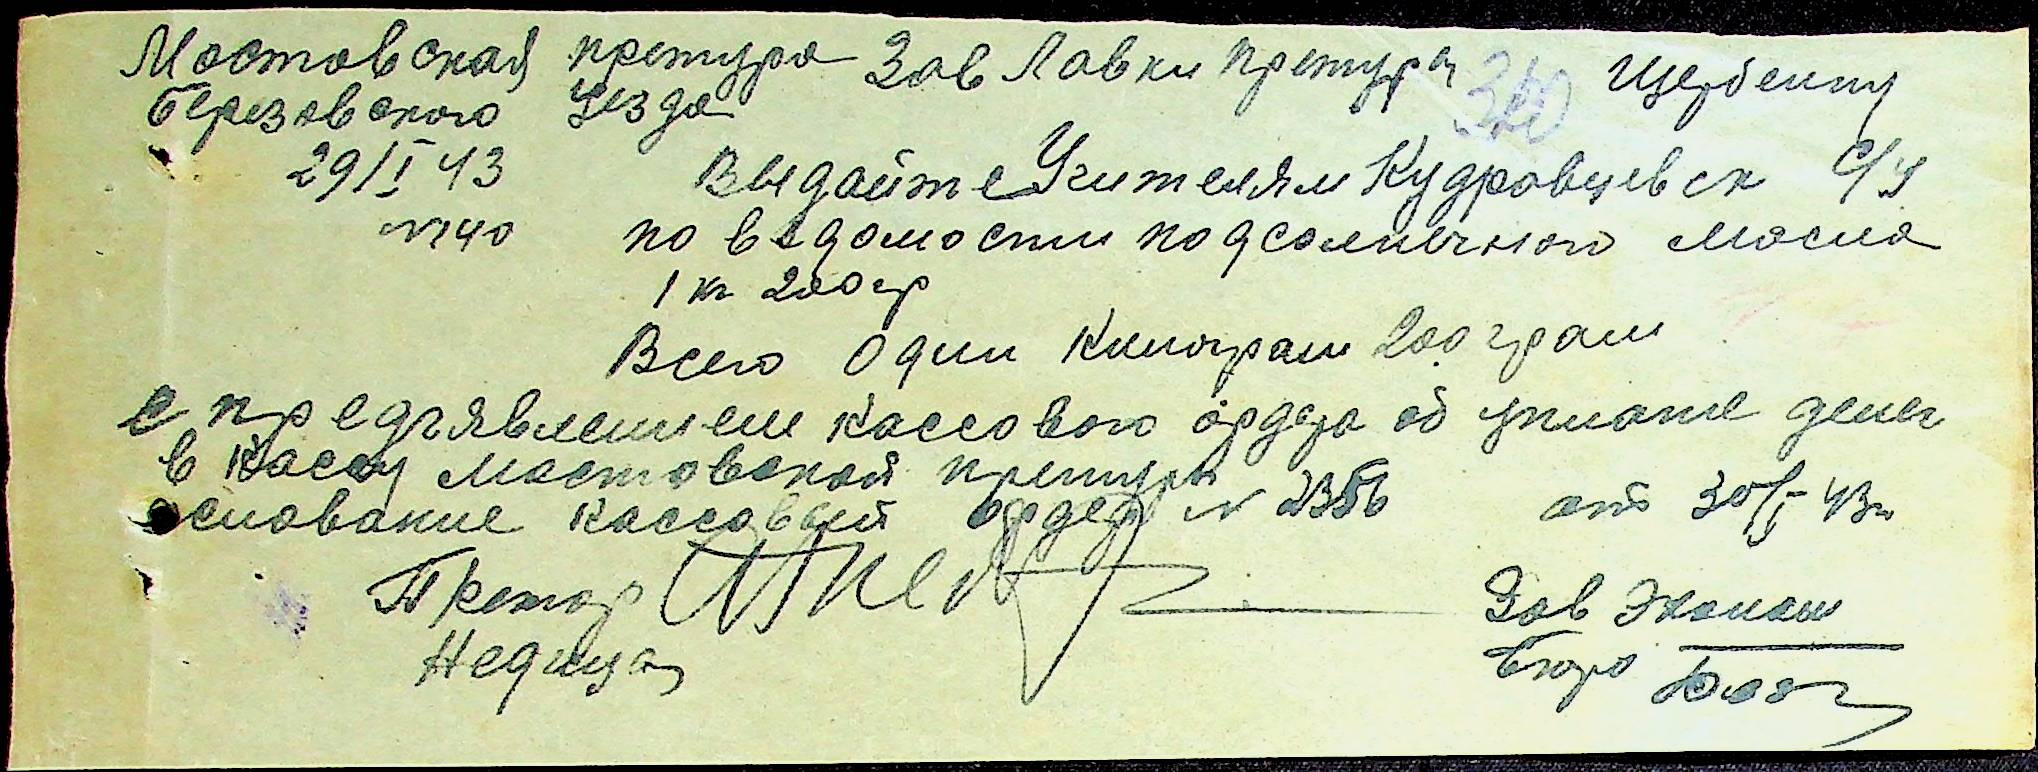 Мостовская претура Зав Лавки претуры Щербенку
Березовского Уезда
29/I 43
Выдайте Учителям Кудрявцевск с/у
№ 140
по ведомости подсолнечного масла
1 кг 200 гр
Всего Один килограм 200 грам
с предъявлением кассового ордера об уплате денег
в кассу Мостовской претуры
основание кассовый ордер № 2356 от 30/I-43 г
Претор
Недица
Зав Эконом
Бюро